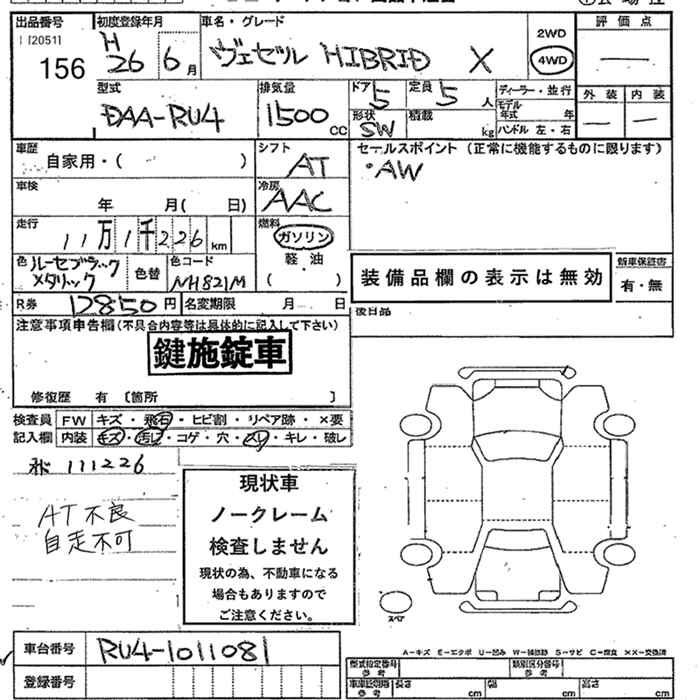 出品番号 初度登録年月 車名・グレード 評価点
112051
156 H26 6月 ヴェゼル HIBRID X 2WD 4WD ー
型式 排気量 ドア 5 定員 5人 ディーラー・並行 外装 内装
DAA-RU4 1500cc 形状 SW 積載 kg モデル年式 年 ー ー
ハンドル 左・右
車歴 シフト セールスポイント(正常に機能するものに限ります)
自家用・( ) AT ・AW
車検 冷房
年 月( 日) AAC
走行 燃料
11万1千226km ガソリン
軽油
( )
色 ルーセブラックメタリック 色替 色コード NH821M
装備品欄の表示は無効 新車保証書
有・無
R券 D850円 名変期限 月 日 後日品
注意事項申告欄(不具合内容等は具体的に記入して下さい)
鍵施錠車
修復歴 有 〔箇所 〕
検査員 FW キズ・飛石・ヒビ割・リペア跡・×要
記入欄 内装 キズ・汚れ・コゲ・穴・スレ・キレ・破レ
111226
AT不良
自走不可
現状車
ノークレーム
検査しません
現状の為、不動車になる
場合もありますので
ご注意ください。
スペア
A-キズ E-エクボ U-凹み W-補修跡 S-サビ C-腐食 ××-交換済
車台番号 RU4-1011081
登録番号
型式指定番号 参考 類別区分番号 参考
車車総明細 参考 長さ cm 幅 cm 高さ cm